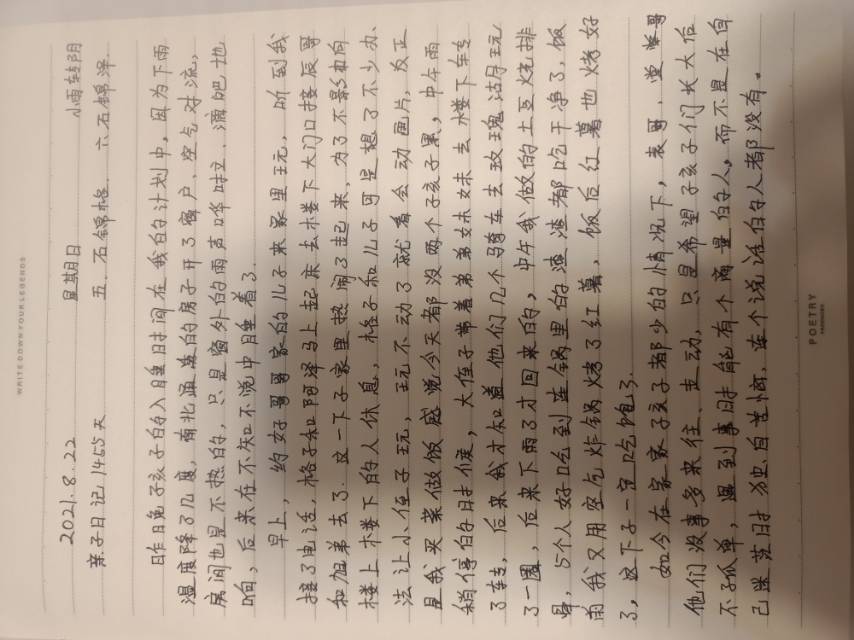 WRITE DOWN YOUR LEGENDS
2021.8.22 星期日 小雨转阴
亲子日记1455天 五.石锦格. 六石锦泽.
昨日兔子孩子的入睡时间在我的计划中,因为下雨
温度降了几度,南北通透的房子开了窗户、空气对流,
房间也是不热的,只是窗外的雨声哗啦、滴吧地
响,后来在不知不觉中睡着了.
早上,约好哥哥家的儿子来家里玩,听到我
接了电话,格子和阿泽马上起床去楼下大门口接辰哥
和旭弟去了.这一下子家里热闹了起来,为了不影响
楼上楼下的人休息,格子和儿子可是想了不少办、
法让小侄子玩,玩不动了就看会动画片,反正
是我买菜做饭感觉今天都没两个孩子累,中午雨
稍停的时候,大侄子带着弟弟妹妹去楼下车
了转,后来我才知道他们几个骑车去玫瑰沽月玩
了一圈,后来下雨了才回来的,中午我做的土豆烧排
骨,5个人好吃到连锅里的渣渣都吃干净了,饭
前我又用空气炸锅烤了红薯,饭后红薯也烤好
了,这下子一定吃饱了.
如今在家家孩子都少的情况下,表哥、堂哥
他们没事多来往、走动,只是希望孩子们长大后
不孤单,遇到事时能有个商量的人,而不是在自
己迷茫时独自苦恼,连个说话的人都没有。
POETRY